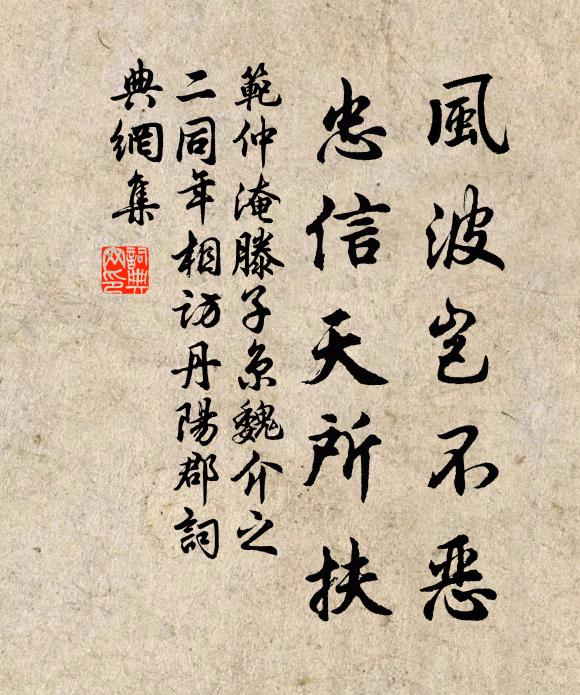 風波豈不惡
忠信天所扶
範仲淹滕子京魏介之
二同年相訪丹陽郡詞
典網集
詞典
网印